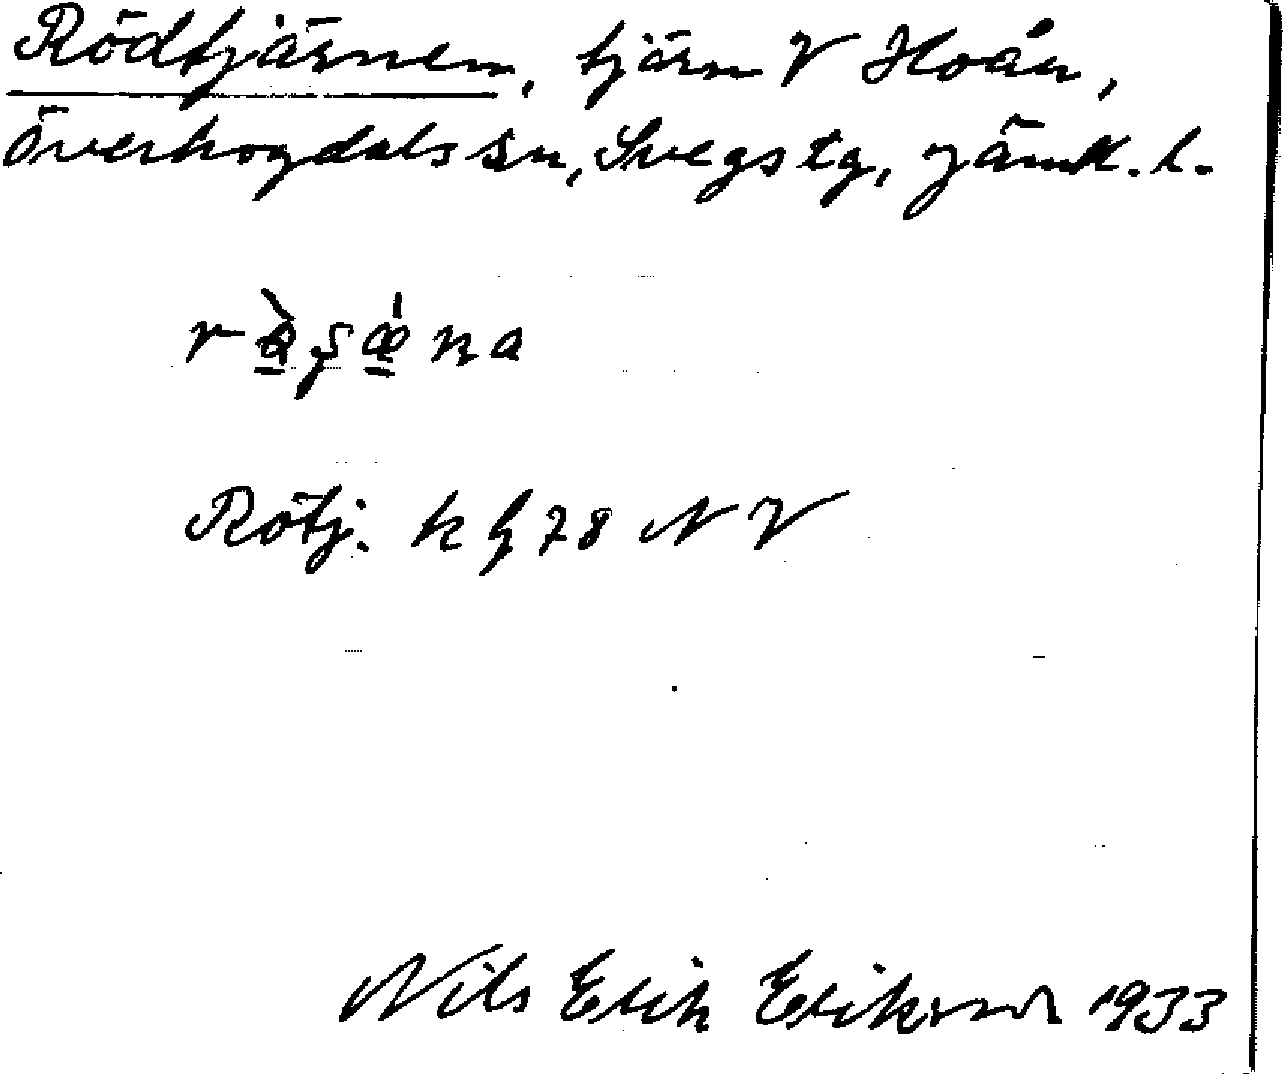 Rödtjärnen, tjärn V Hoån,
Överhogdals sn, Svegs tg, Jämtl. l.
Rötj. k bl 78 NV
Nils Erik Eriksson 1933